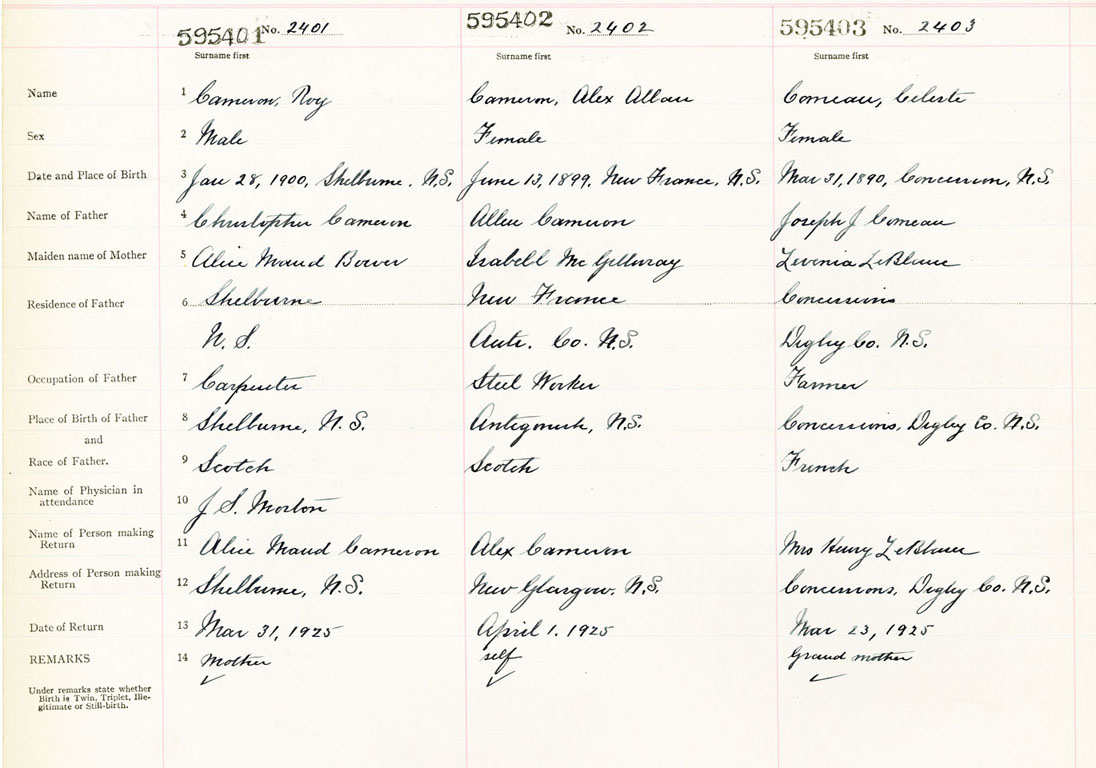 595401 No. 2401 595402 No. 2402 595403 No. 2403
Surname first Surname first Surname first
Name 1 Cameron, Roy Cameron, Alex Allan Comeau, Celeste
Sex 2 Male Female Female
Date and Place of Birth 3 Jan 28, 1900, Shelburne, N.S. June 13, 1899, New France, N.S. Mar 31, 1890, Concession, N.S.
Name of Father 4 Christopher Cameron Allen Cameron Joseph J Comeau
Maiden name of Mother 5 Alice Maud Bower Isabell McGillvray Levenia LeBlanc
Residence of Father 6 Shelburne New France Concessions
N.S. Ante. Co. N.S. Digby Co. N.S.
Occupation of Father 7 Carpenter Steel Worker Farmer
Place of Birth of Father 8 Shelburne, N.S. Antigonish, N.S. Concessions, Digby Co. N.S.
and
Race of Father. 9 Scotch Scotch French
Name of Physician in
attendance 10 J S. Morton
Name of Person making
Return 11 Alice Maud Cameron Alex Cameron Mrs Henry LeBlanc
Address of Person making
Return 12 Shelburne, N.S. New Glasgow. N.S. Concessions, Digby Co. N.S.
Date of Return 13 Mar 31, 1925 April 1. 1925 Mar 23, 1925
REMARKS 14 Mother self Grand mother
Under remarks state whether
Birth is Twin, Triplet, Ille-
gitimate or Still-birth.